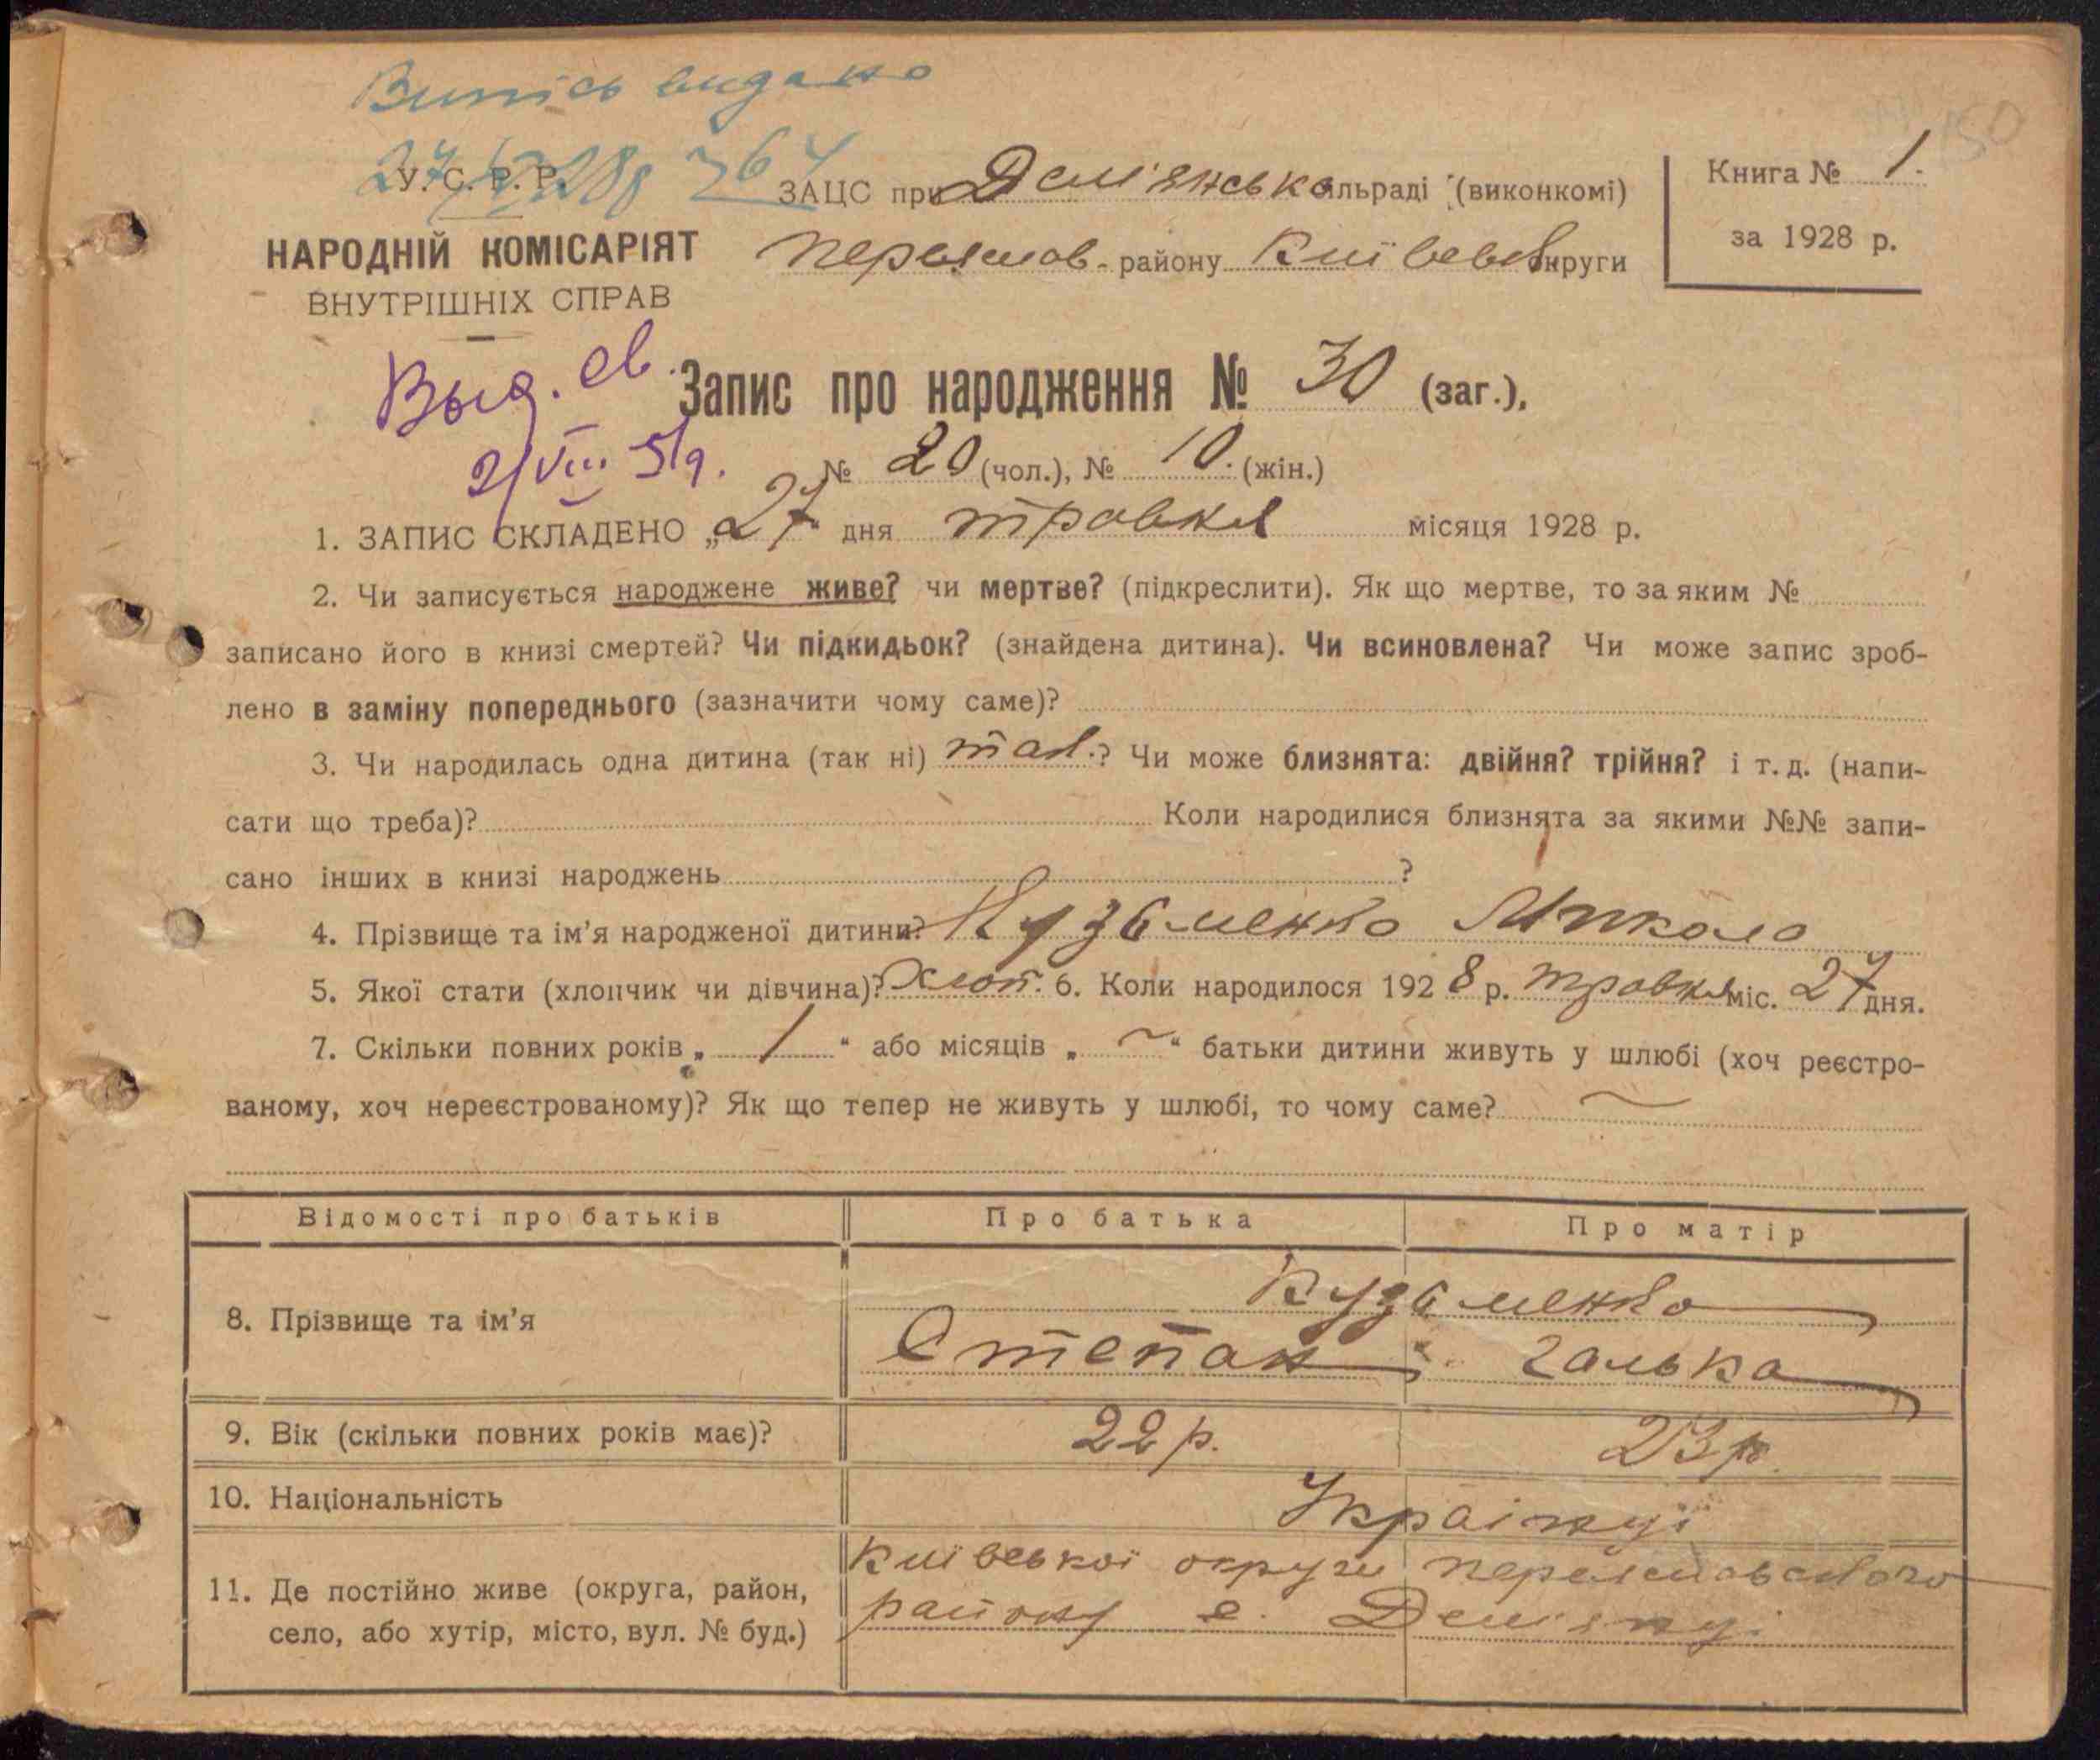 Випісь видано
27/V 28р 764
У. С. Р. Р.
ЗАЦС при Дем'янській сільраді (виконкомі)
Книга № 1.
за 1928 р.
НАРОДНІЙ КОМІСАРІЯТ
ВНУТРІШНІХ СПРАВ
Переяслов. району Київськ округи
Выд. св.
2/VIII 51г.
Запис про народження № 30 (заг.),
№ 20 (чол.), № 10. (жін.)
1. ЗАПИС СКЛАДЕНО „27" дня травня місяця 1928 р.
2. Чи записується народжене живе? чи мертве? (підкреслити). Як що мертве, то за яким №
записано його в книзі смертей? Чи підкидьок? (знайдена дитина). Чи всиновлена? Чи може запис зроб-
лено в заміну попереднього (зазначити чому саме)?
3. Чи народилась одна дитина (так ні) так.? Чи може близнята: двійня? трійня? і т. д. (напи-
сати що треба)? Коли народилися близнята за якими №№ запи-
сано інших в книзі народжень ?
4. Прізвище та ім'я народженої дитини? Кузьменко Микола
5. Якої стати (хлопчик чи дівчина)? Хлоп. 6. Коли народилося 1928 р. травня міс. 27 дня.
7. Скільки повних років „ 1 " або місяців „ ~ " батьки дитини живуть у шлюбі (хоч реєстро-
ваному, хоч нереєстрованому)? Як що тепер не живуть у шлюбі, то чому саме? ~
Відомості про батьків Про батька Про матір
8. Прізвище та ім'я Кузьменко
Степан Галька
9. Вік (скільки повних років має)? 22 р. 23 р.
10. Національність Українці
11. Де постійно живе (округа, район,
село, або хутір, місто, вул. № буд.)
Київської округи Переяславського
району с. Дем'янці